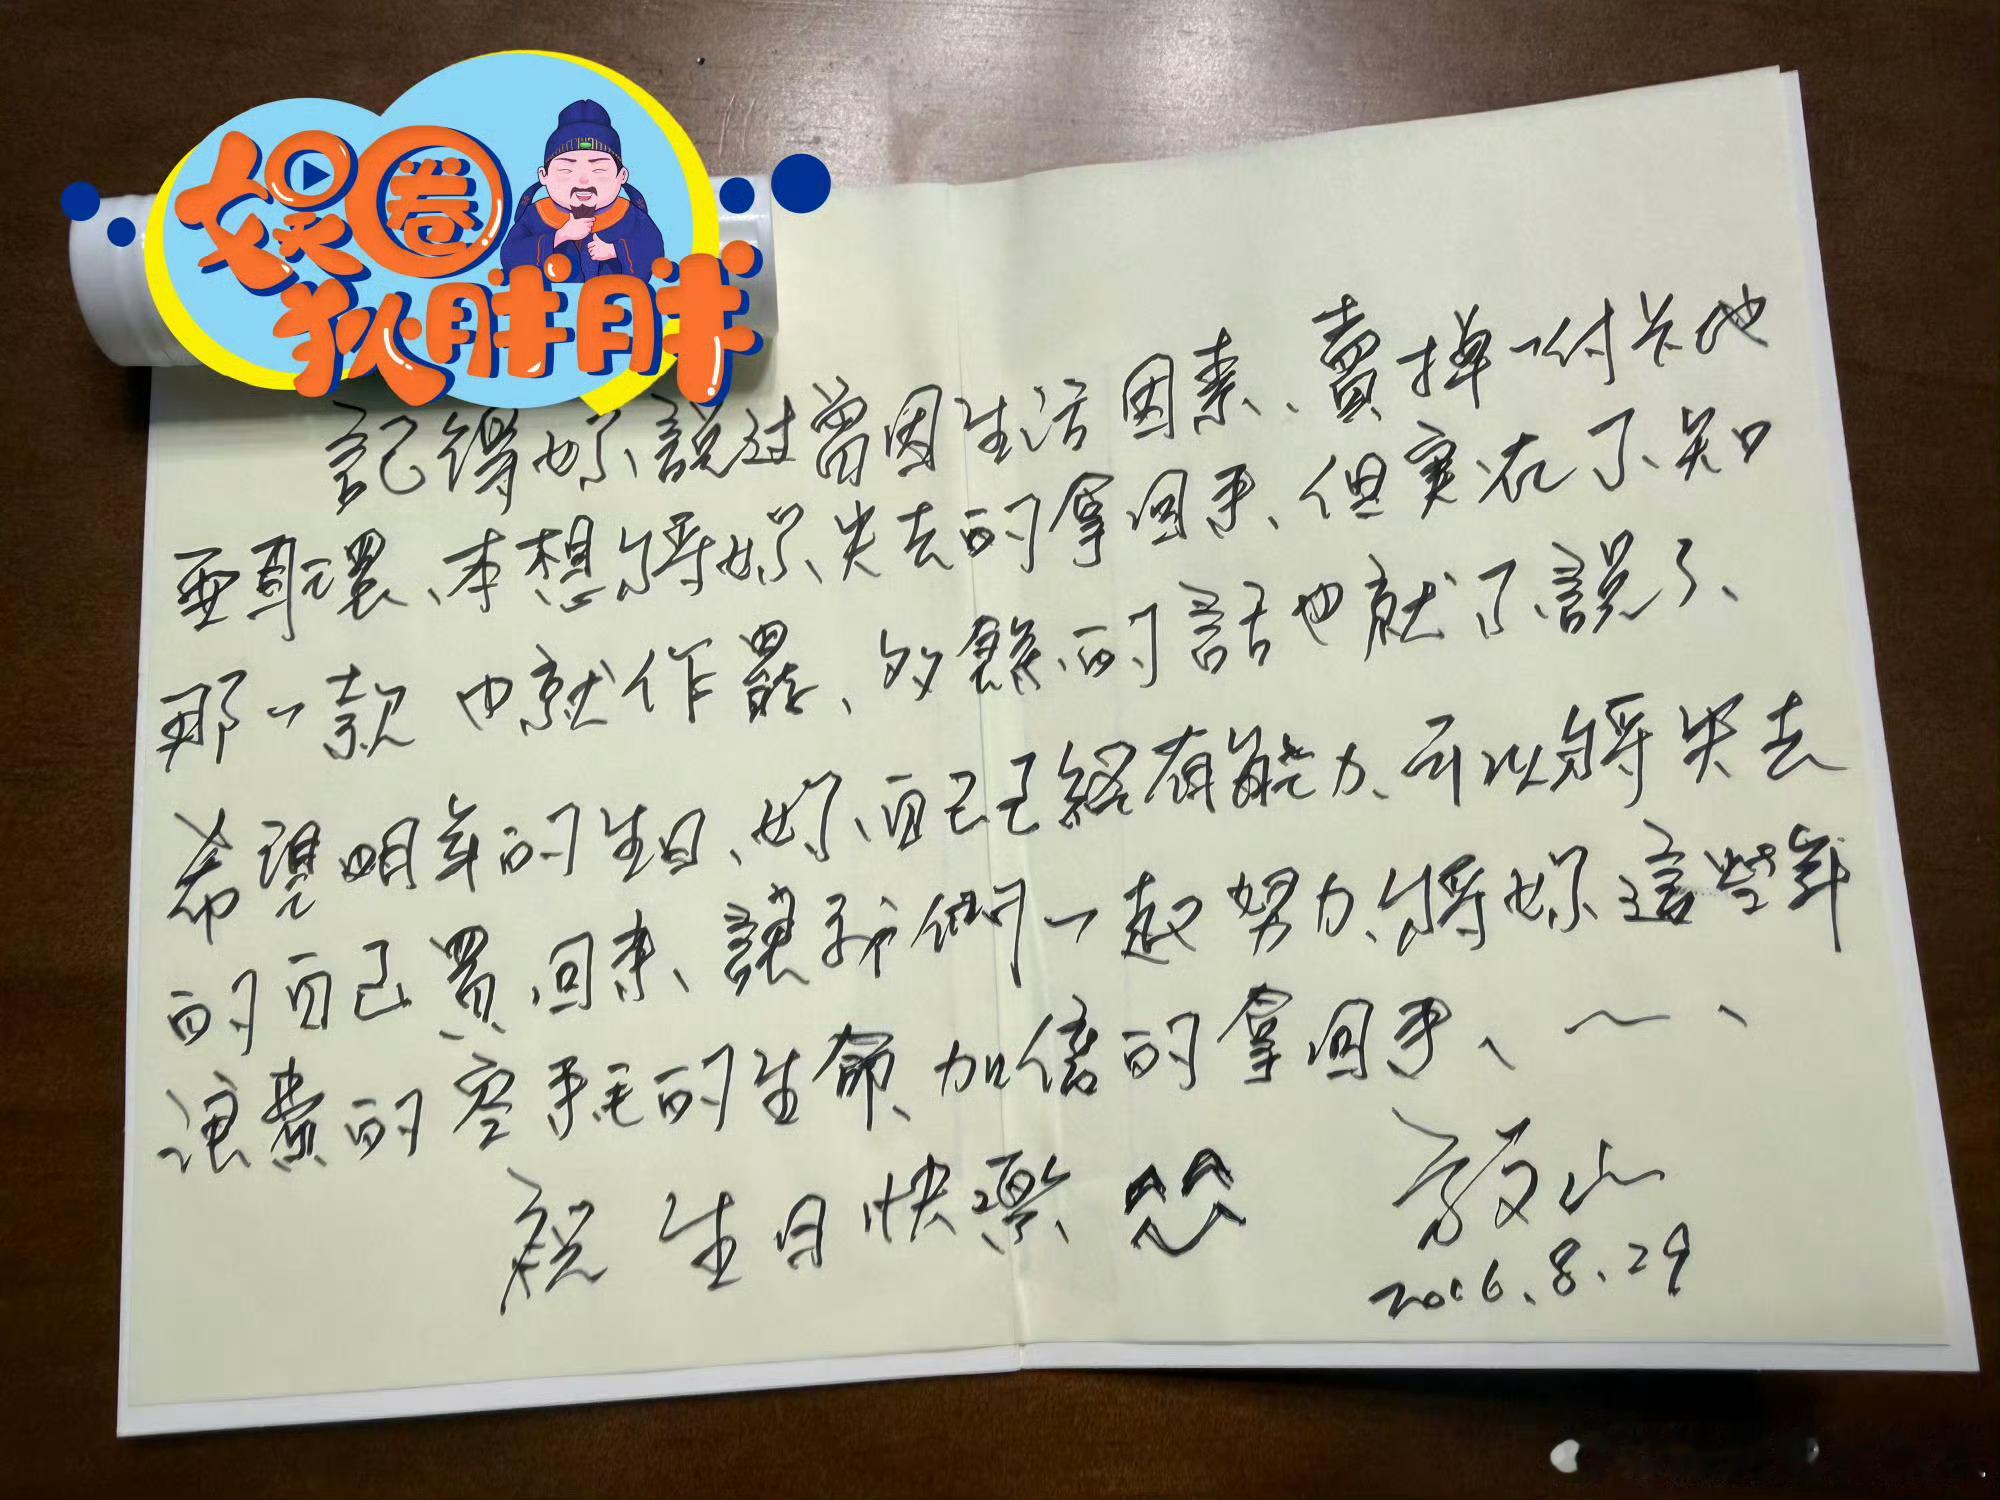 娱圈
狄胖胖
記得妳說过曾因生活因素、賣掉一付卡地
亜耳環、本想将妳失去的拿回手、但实在不知
那一款 也就作罷、多餘的話也就不說了、
希望明年的生日、妳自己已經有能力、可以将失去
的自己買回来、讓我們一起努力、将妳這些年
浪費的 的生命、加倍的拿回手、～、
祝 生日快樂
2016.8.29